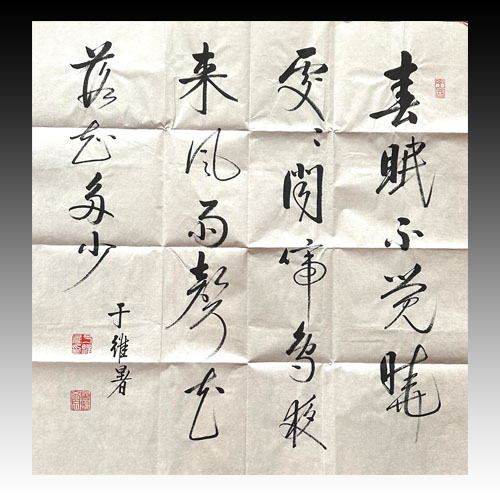 春眠不觉晓
处々闻啼鸟夜
来风雨聲花
落知多少
于维暑